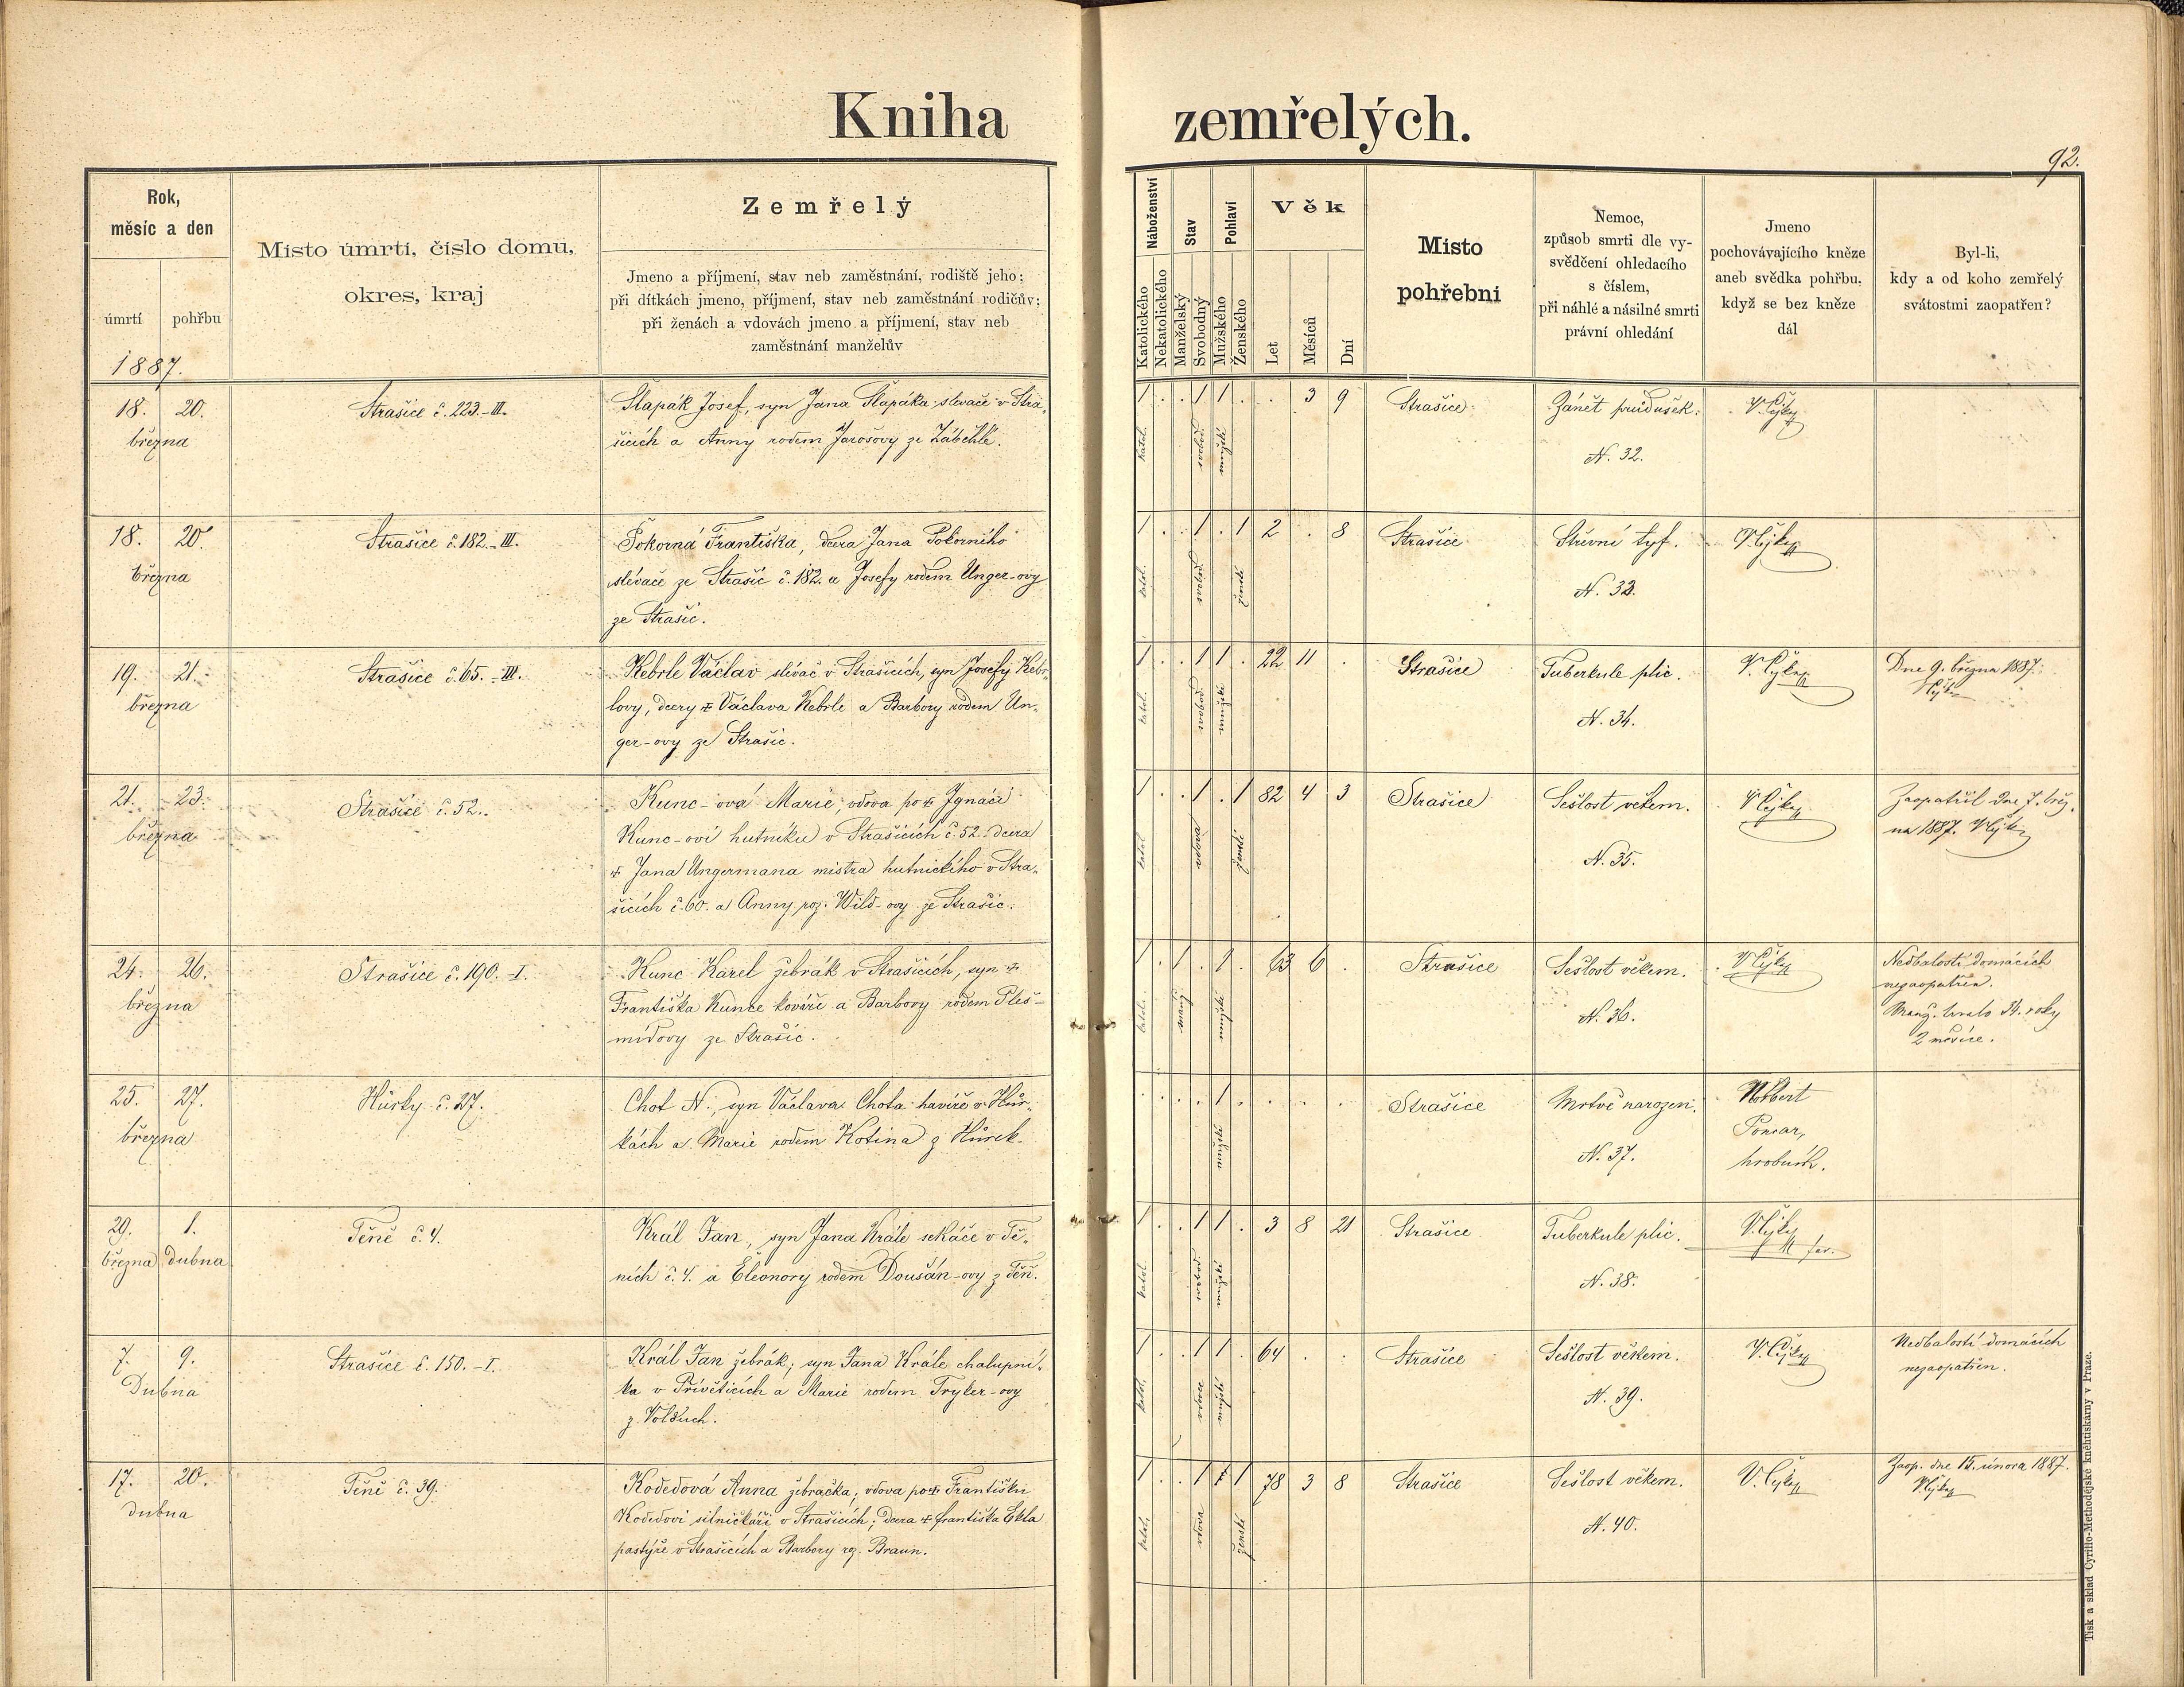 Kniha zemřelých.
92.
Rok,
měsíc a den
úmrtí
pohřbu
1887.
Místo úmrtí, číslo domu,
okres, kraj
Zemřelý
Jmeno a příjmení, stav neb zaměstnání, rodiště jeho;
při dítkách jmeno, příjmení, stav neb zaměstnání rodičův;
při ženách a vdovách jmeno a příjmení, stav neb
zaměstnání manželův
Náboženství
Katolického
Nekatolického
Stav
Manželský
Svobodný
Pohlaví
Mužského
Ženského
Věk
Let
Měsíců
Dní
Místo
pohřebni
Nemoc,
způsob smrti dle vy-
svědčení ohledacího
s číslem,
při náhlé a násilné smrti
právní ohledání
Jmeno
pochovávajícího kněze
aneb svědka pohřbu,
když se bez kněze
dál
Byl-li,
kdy a od koho zemřelý
svátostmi zaopatřen?
18. 20.
března
Strašice č. 223.-III.
Šlapák Josef, syn Jana Šlapáka slevače v Stra-
šicích a Anny rodem Jarošovy ze Záběhlé.
1 . . 1 1 . . 3 9
katol. svobod. mužské
Strašice
Zánět průdušek.
N. 32.
18. 20.
března
Strašice č. 182.-III.
Pokorná Františka, dcera Jana Pokorního
slévače ze Strašic č. 182. a Josefy rodem Unger-ovy
ze Strašic.
1 . . 1 . 1 2 . 8
katol. svobod. ženské
Strašice
Střevní tyf.
N. 33.
19. 21.
března
Strašice č. 65.-III.
Kebrle Václav slévač v Strašicích, syn Josefy Kebr-
lovy, dcery + Václava Kebrle a Barbory rodem Un-
ger-ovy ze Strašic.
1 . . 1 1 . 22 11 .
katol. svobod. mužské
Strašice
Tuberkule plic.
N. 34.
Dne 9. března 1887.
21. 23.
března
Strašice č. 52.
Kunc-ová Marie, vdova po + Ignáci
Kunc-ovi hutníku v Strašicích č. 52. dcera
+ Jana Ungermana mistra hutnického v Stra-
šicích č. 60. a Anny roz. Wild-ovy ze Strašic.
1 . . 1 . 1 82 4 3
katol. vdova ženské
Strašice
Sešlost věkem.
N. 35.
Zaopatřil dne 7. břez-
na 1887.
24. 26.
března
Strašice č. 190.-I.
Kunc Karel žebrák v Strašicích, syn +
Františka Kunce kováře a Barbory rodem Ples-
mídovy ze Strašic.
1 . 1 . 1 . 63 6 .
katol. manž. mužské
Strašice
Sešlost věkem.
N. 36.
Nedbalostí domácích
nezaopatřen.
Manž. trvalo 34. roky
2 měsíce.
25. 27.
března
Hůrky č. 27.
Chot N., syn Václava Chota havíře v Hůr-
kách a Marie rodem Kotina z Hůrek.
. . . . 1 . . . .
mužské
Strašice
Mrtvě narozen.
N. 37.
Norbert
Poncar,
hrobník.
29. 1.
března dubna
Těně č. 4.
Král Jan, syn Jana Krále sekáče v Tě-
ních č. 4. a Eleonory rodem Doušán-ovy z Těň.
1 . . 1 1 . 3 8 21
katol. svobod. mužské
Strašice
Tuberkule plic.
N. 38.
far.
7. 9.
Dubna
Strašice č. 150.-I.
Král Jan žebrák, syn Jana Krále chalupní-
ka v Přívěticích a Marie rodem Tryker-ovy
z Volduch.
1 . . 1 1 . 64 . .
katol. vdovec mužské
Strašice
Sešlost věkem.
N. 39.
Nedbalostí domácích
nezaopatřen.
17. 20.
dubna
Těně č. 39.
Kodedová Anna žebračka, vdova po + Františku
Kodedovi silničkáři v Strašicích; dcera + františka Ekla
pastýře v Strašicích a Barbory roz. Braun.
1 . . 1 1 78 3 8
katol. vdova ženské
Strašice
Sešlost věkem.
N. 40.
Zaop. dne 15. února 1887.
Tisk a sklad Cyrillo-Methodějské knihtiskárny v Praze.